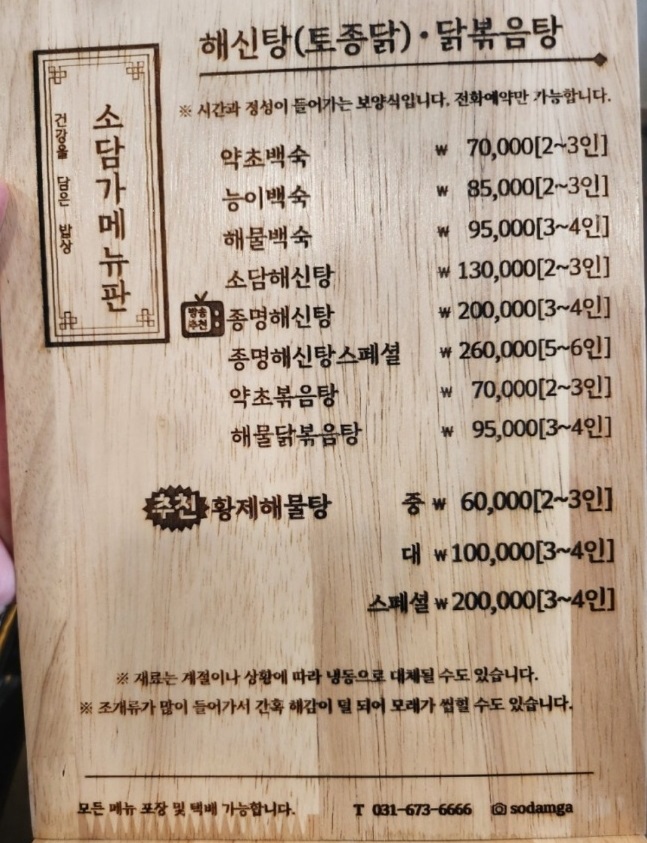 해신탕(토종닭)·닭볶음탕
소담가메뉴판
건강을 담은 밥상
※ 시간과 정성이 들어가는 보양식입니다. 전화예약만 가능합니다.
약초백숙 ₩ 70,000[2~3인]
능이백숙 ₩ 85,000[2~3인]
해물백숙 ₩ 95,000[3~4인]
소담해신탕 ₩ 130,000[2~3인]
방송추천 종명해신탕 ₩ 200,000[3~4인]
종명해신탕스페셜 ₩ 260,000[5~6인]
약초볶음탕 ₩ 70,000[2~3인]
해물닭볶음탕 ₩ 95,000[3~4인]
추천 황제해물탕 중 ₩ 60,000[2~3인]
대 ₩ 100,000[3~4인]
스페셜 ₩ 200,000[3~4인]
※ 재료는 계절이나 상황에 따라 냉동으로 대체될 수도 있습니다.
※ 조개류가 많이 들어가서 간혹 해감이 덜 되어 모래가 씹힐 수도 있습니다.
모든 메뉴 포장 및 택배 가능합니다. T 031-673-6666 sodamga